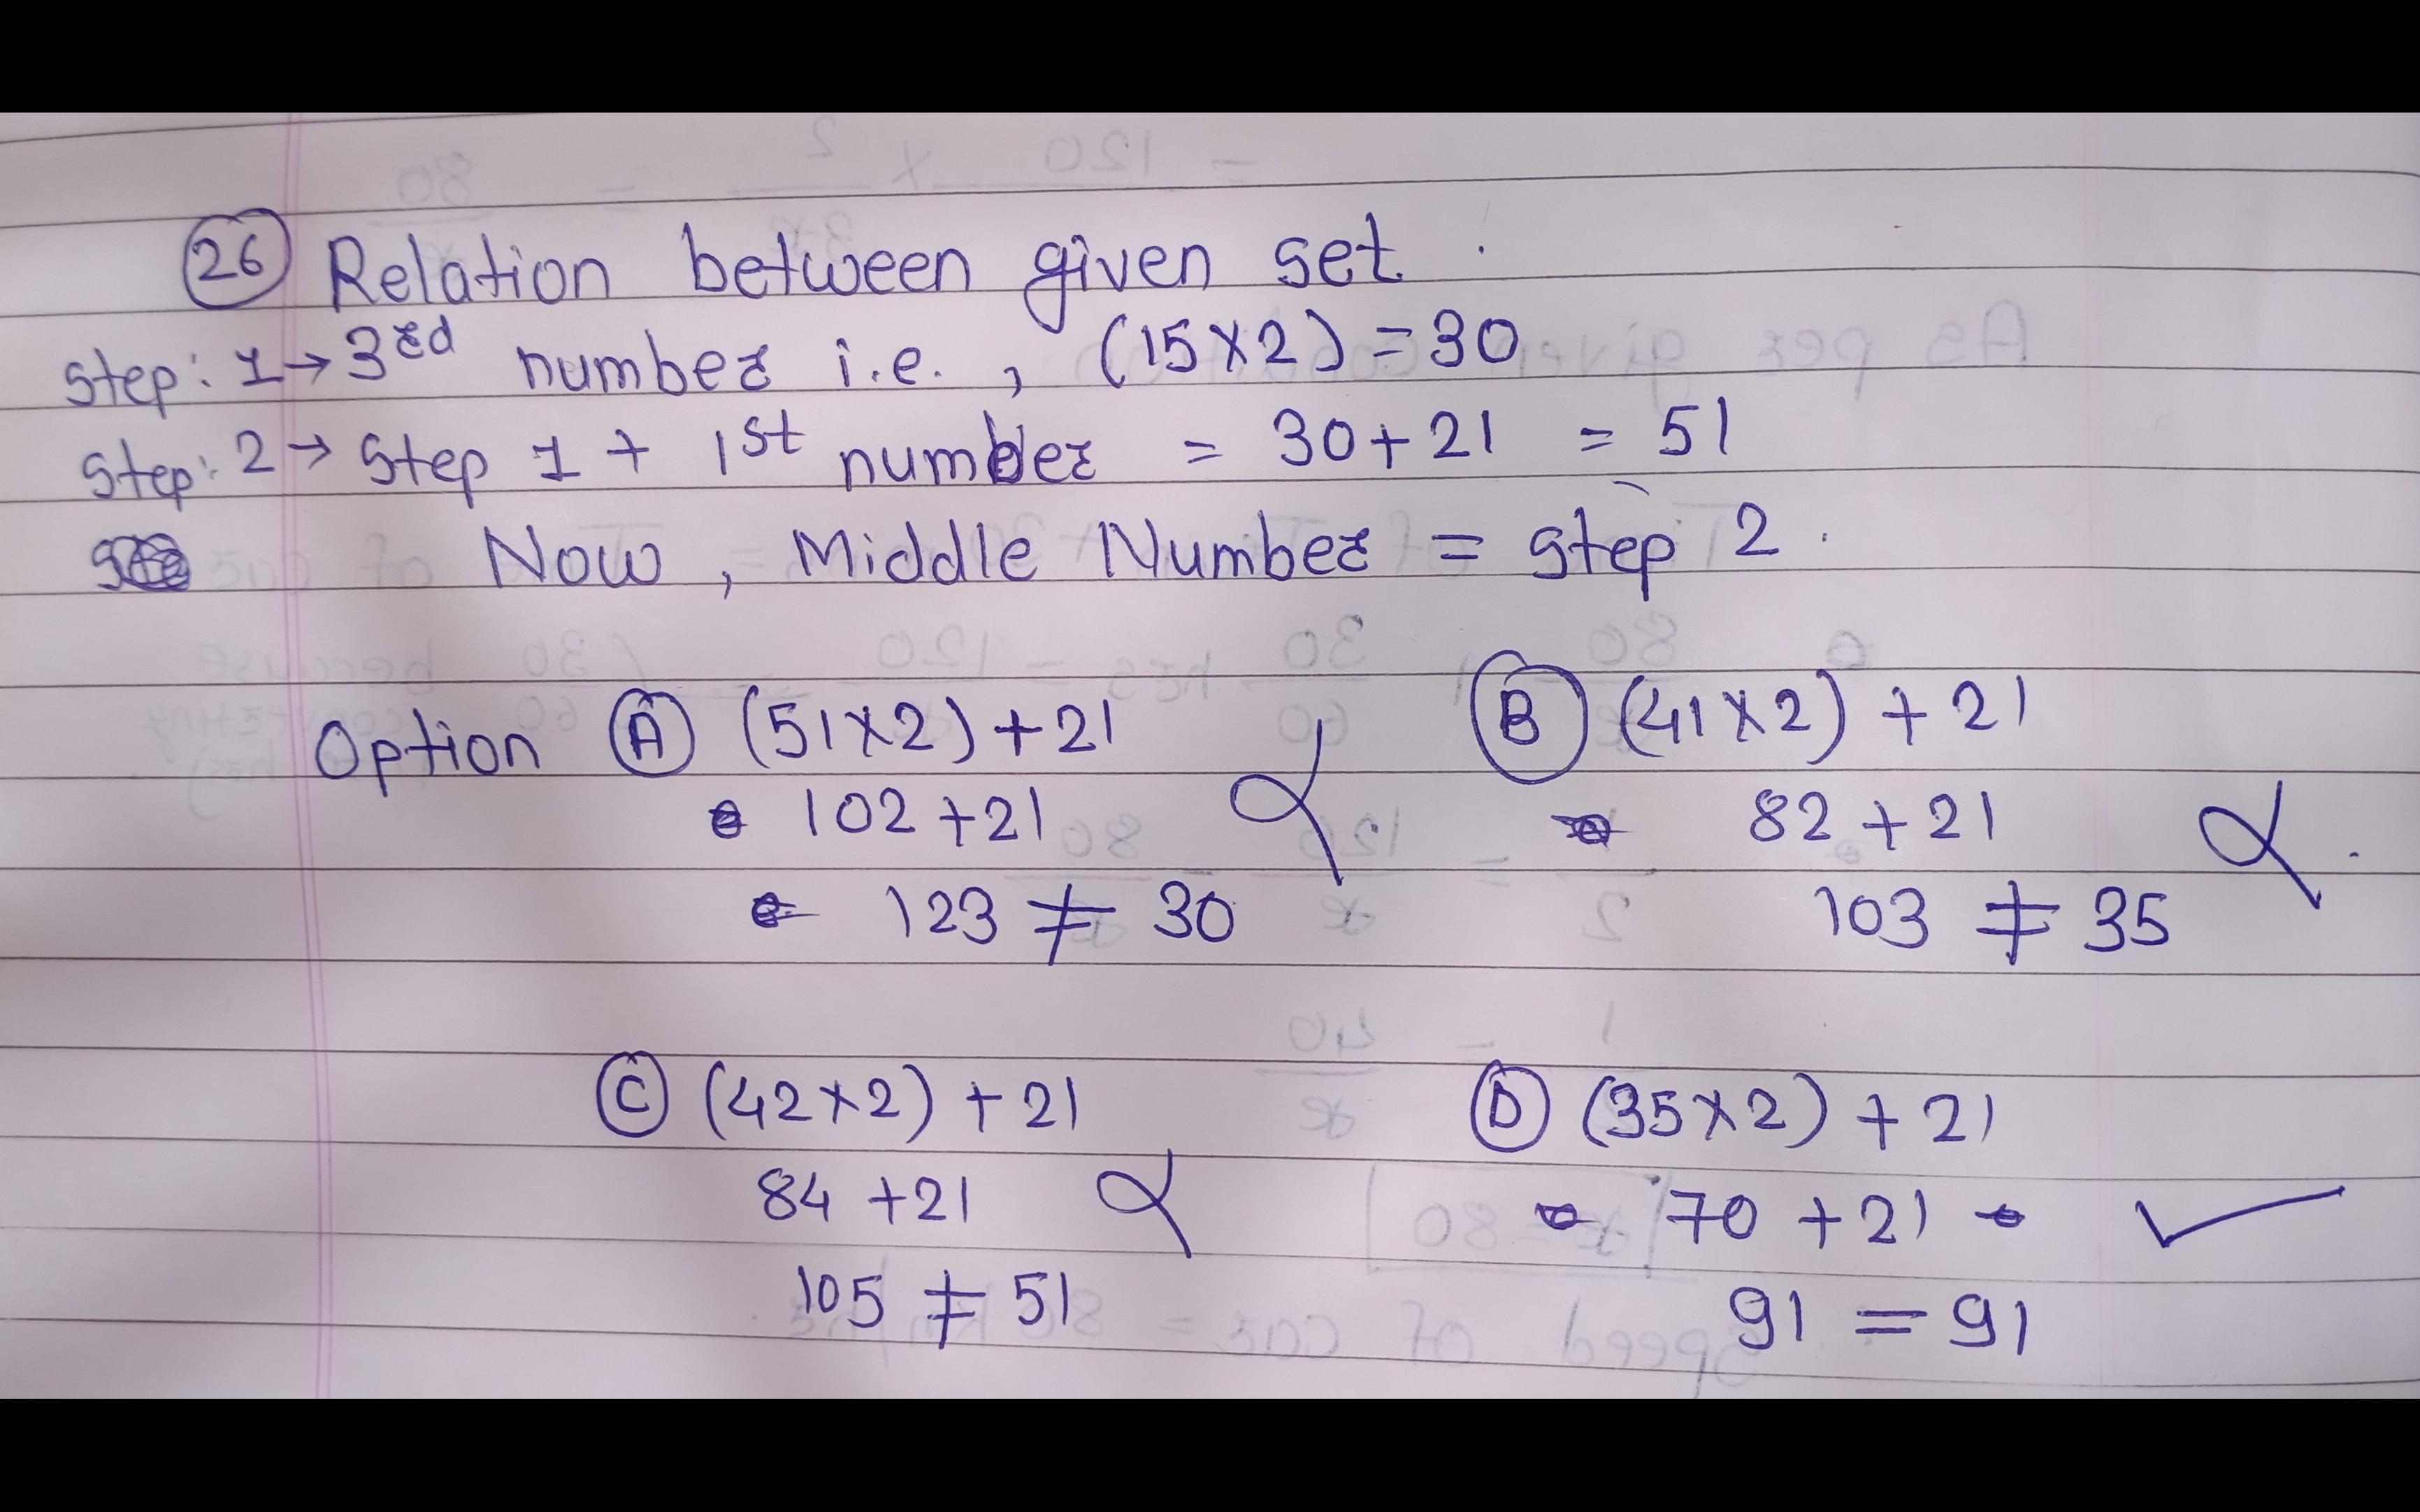 26 Relation between given set.
Step: 1 → 3rd number i.e., (15×2) = 30
Step: 2 → Step 1 + 1st number = 30+21 = 51
Now, Middle Number = Step 2.
Option A (51×2)+21
102+21
123 ≠ 30
B (41×2) + 21
82 + 21
103 ≠ 35
C (42×2) + 21
84 +21
105 ≠ 51
D (35×2) + 21
70 + 21
91 = 91